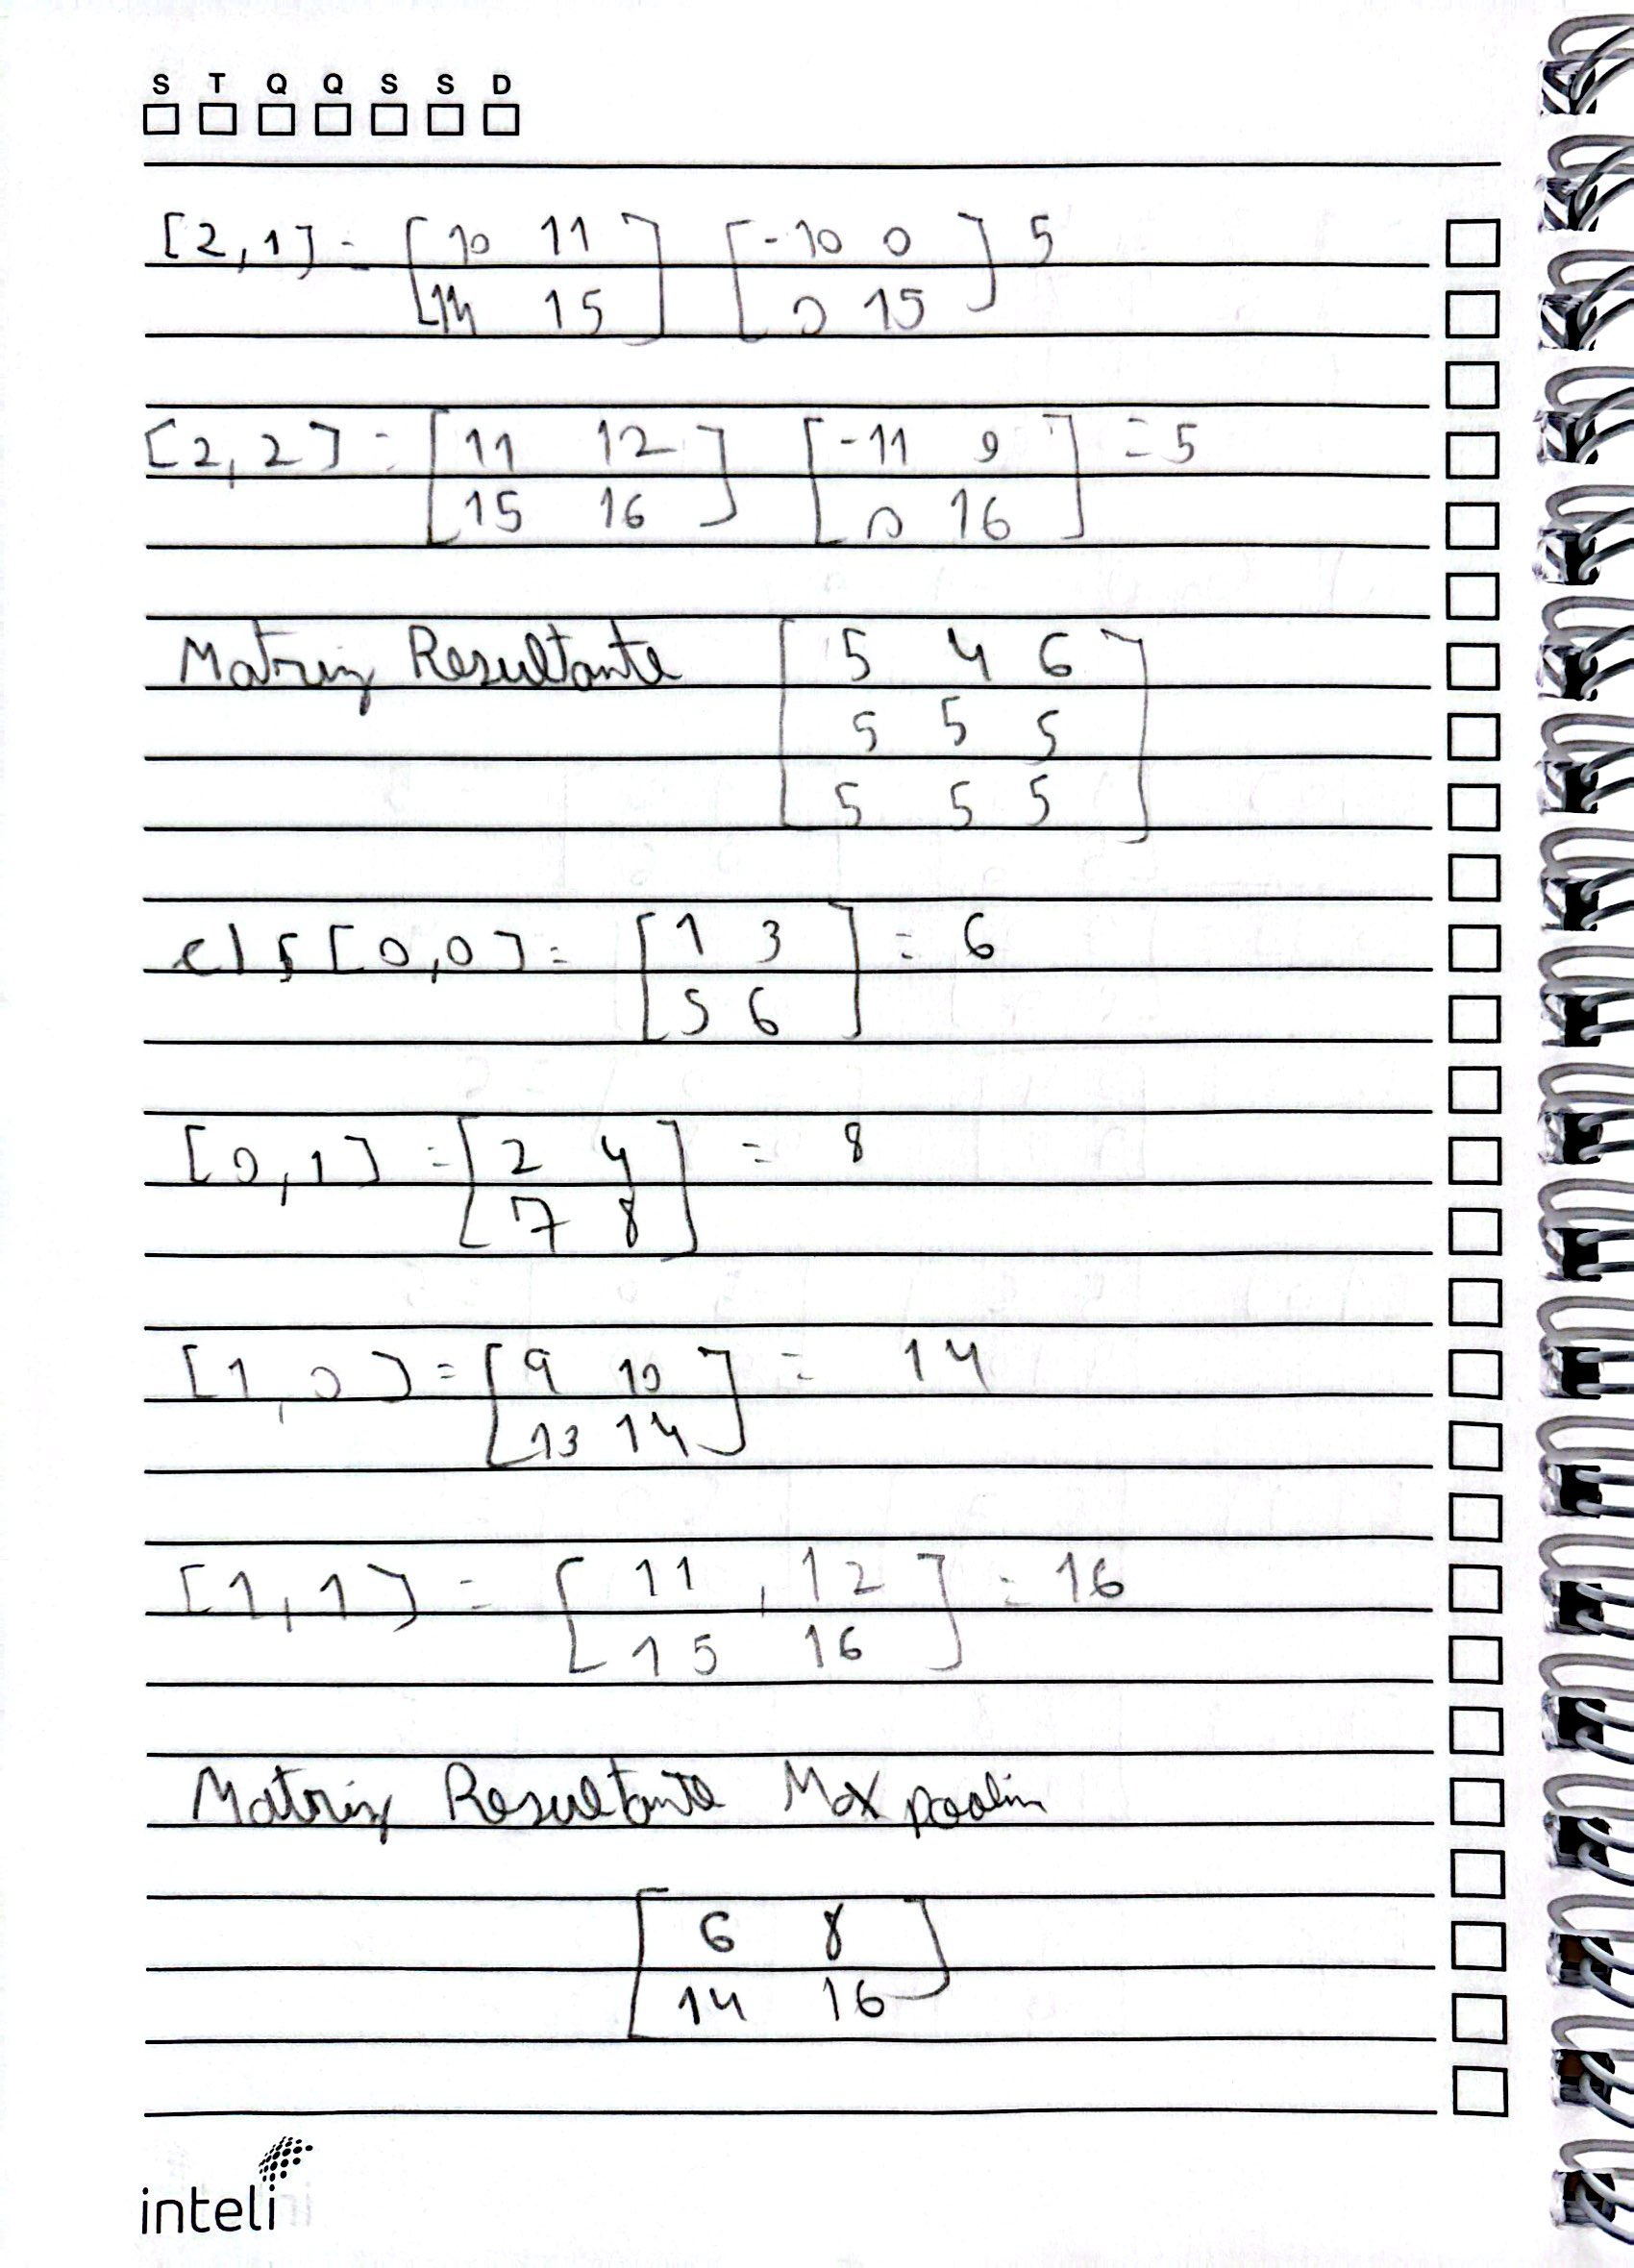 S T Q Q S S D
[2,1] = [10 11] [-10 0] 5
[14 15] [0 15]
[2,2] = [11 12] [-11 0] = 5
[15 16] [0 16]
Matriz Resultante [5 4 6
5 5 5
5 5 5]
[0,0] = [1 3] = 6
[5 6]
[0,1] = [2 4] = 8
[7 8]
[1,0] = [9 10] = 14
[13 14]
[1,1] = [11, 12] = 16
[15 16]
Matriz Resultante Max poolin
[6 8]
[14 16]
inteli